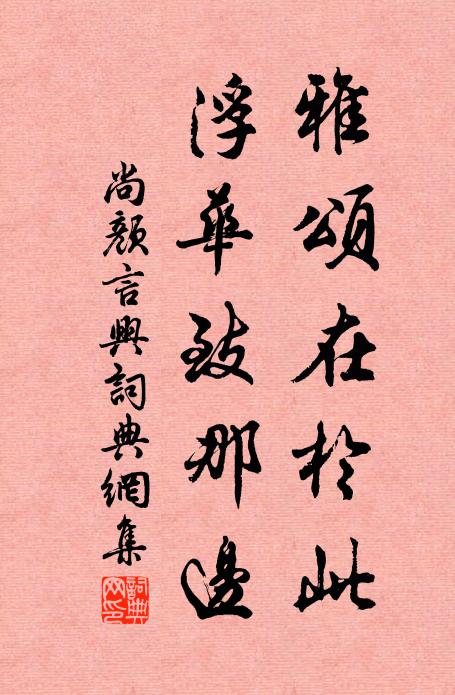 雅頌在於此
浮華致那邊
尚顏言興詞典網集
詞典网印